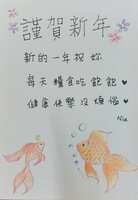 謹賀新年
新的一年祝妳
每天糧食吃飽飽
健康快樂沒煩惱
Nia